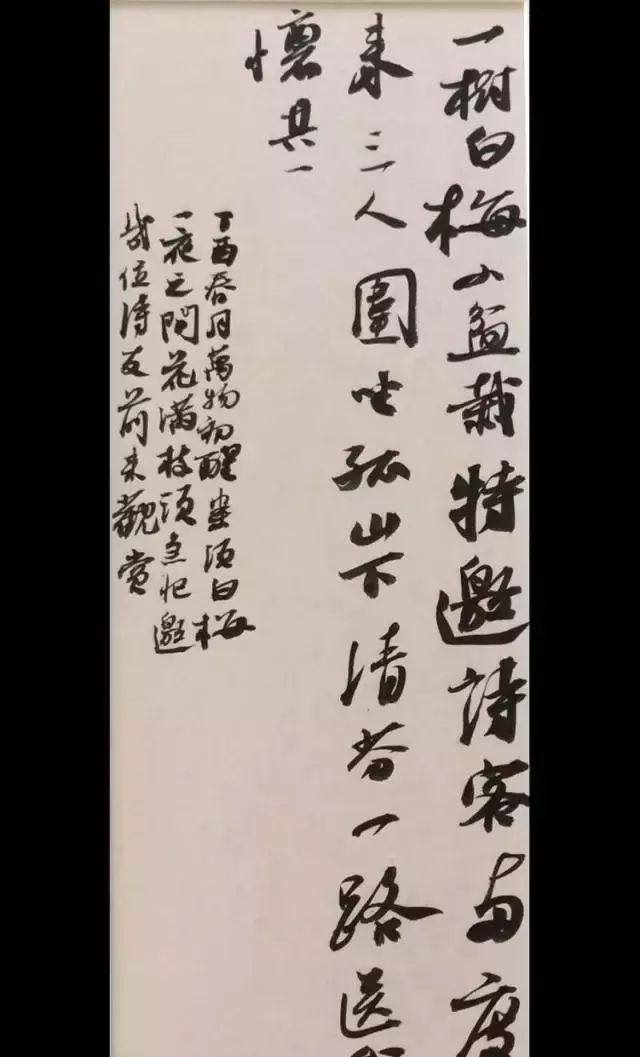 一樹白梅小盆栽特邀詩客
来三人圍坐孤山下清芬一路送
懷其一
丁酉春月萬物初醒案頭白梅
一夜之間花滿枝頭急忙邀
幾位詩友前来觀賞